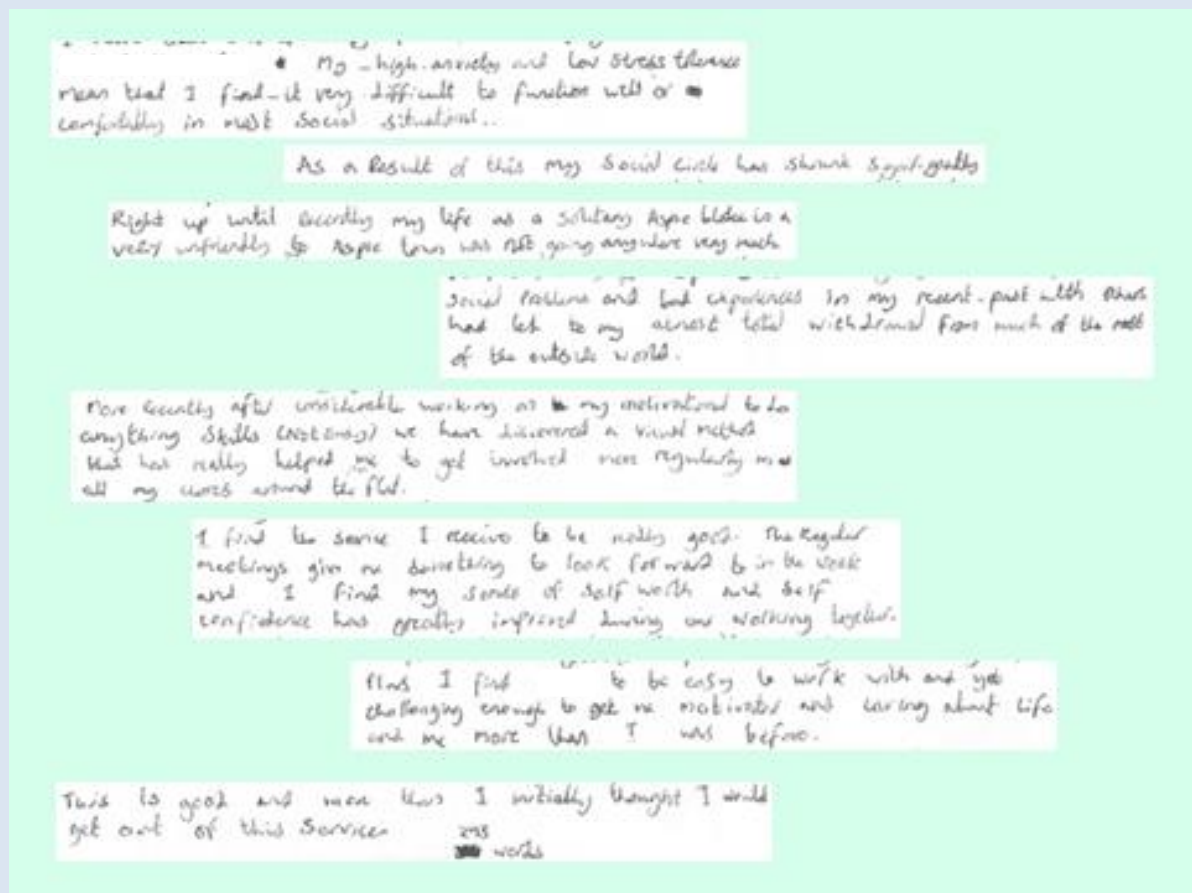 My high anxiety and low stress tolerance
mean that I find it very difficult to function well or
comfortably in most social situations..
As a Result of this my Social Circle has shrunk
Right up until recently my life as a solitary Aspie bloke in a
very unfriendly to Aspie town was not going anywhere very much
social problems and bad experiences in my recent past with others
had led to my almost total withdrawal from much of the rest
of the outside world.
More recently after considerable working on my motivational to do
anything Skills (Not Easy) we have discovered a visual method
that has really helped me to get involved more regularly in
all my chores around the flat.
I find the service I receive to be really good. The Regular
meetings give me something to look forward to in the week
and I find my sense of self worth and self
confidence has greatly improved during our working together.
Plus I find to be easy to work with and yet
challenging enough to get me motivated and caring about life
and me more than I was before.
This is good and more than I initially thought I would
get out of this Service.
words